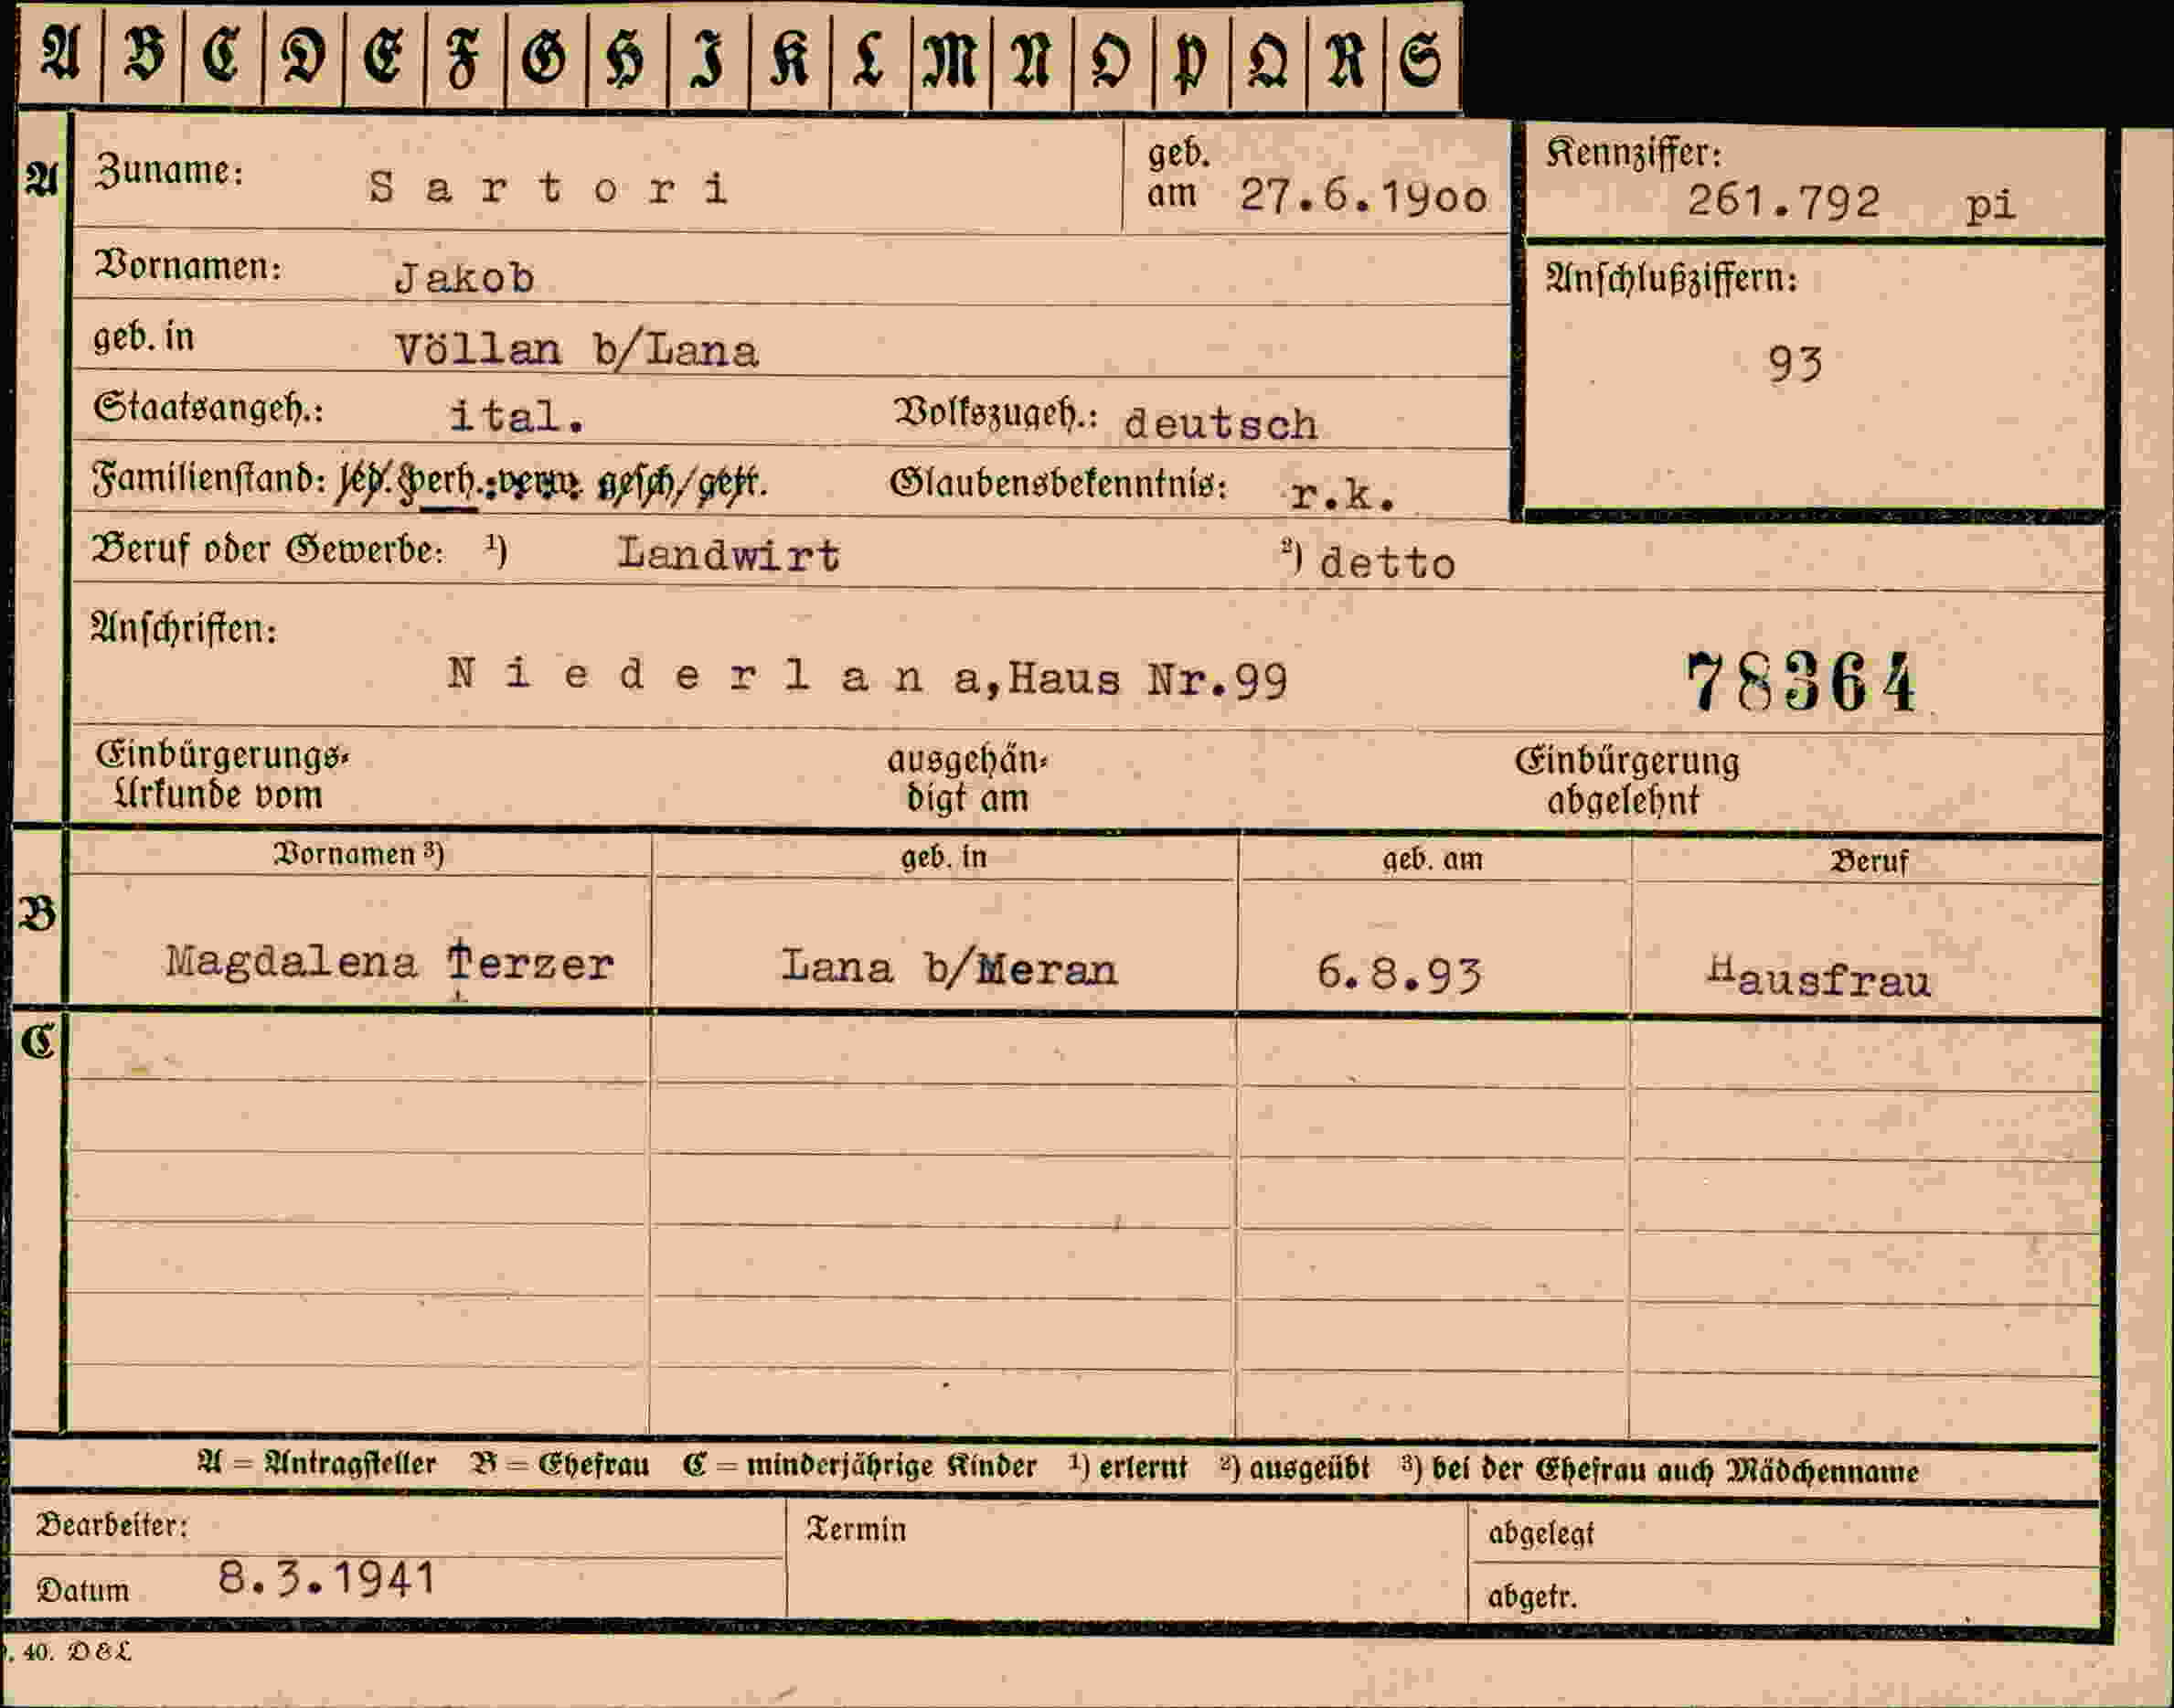 A B C D E F G H I K L M N O P Q R S
A
Zuname: Sartori geb. am 27.6.1900
Kennziffer: 261.792 pi
Vornamen: Jakob
Anschlußziffern:
93
geb. in Völlan b/Lana
Staatsangeh.: ital. Volkszugeh.: deutsch
Familienstand: led. verh. verw. gesch/getr. Glaubensbekenntnis: r.k.
Beruf oder Gewerbe: ¹) Landwirt ²) detto
Anschriften:
Niederlana, Haus Nr.99 78364
Einbürgerungs- ausgehän- Einbürgerung
Urkunde vom digt am abgelehnt
Vornamen ³) geb. in geb. am Beruf
B
Magdalena Terzer Lana b/Meran 6.8.93 Hausfrau
C
A = Antragsteller B = Ehefrau C = minderjährige Kinder ¹) erlernt ²) ausgeübt ³) bei der Ehefrau auch Mädchenname
Bearbeiter: Termin abgelegt
Datum 8.3.1941 abgetr.
. 40. D&L